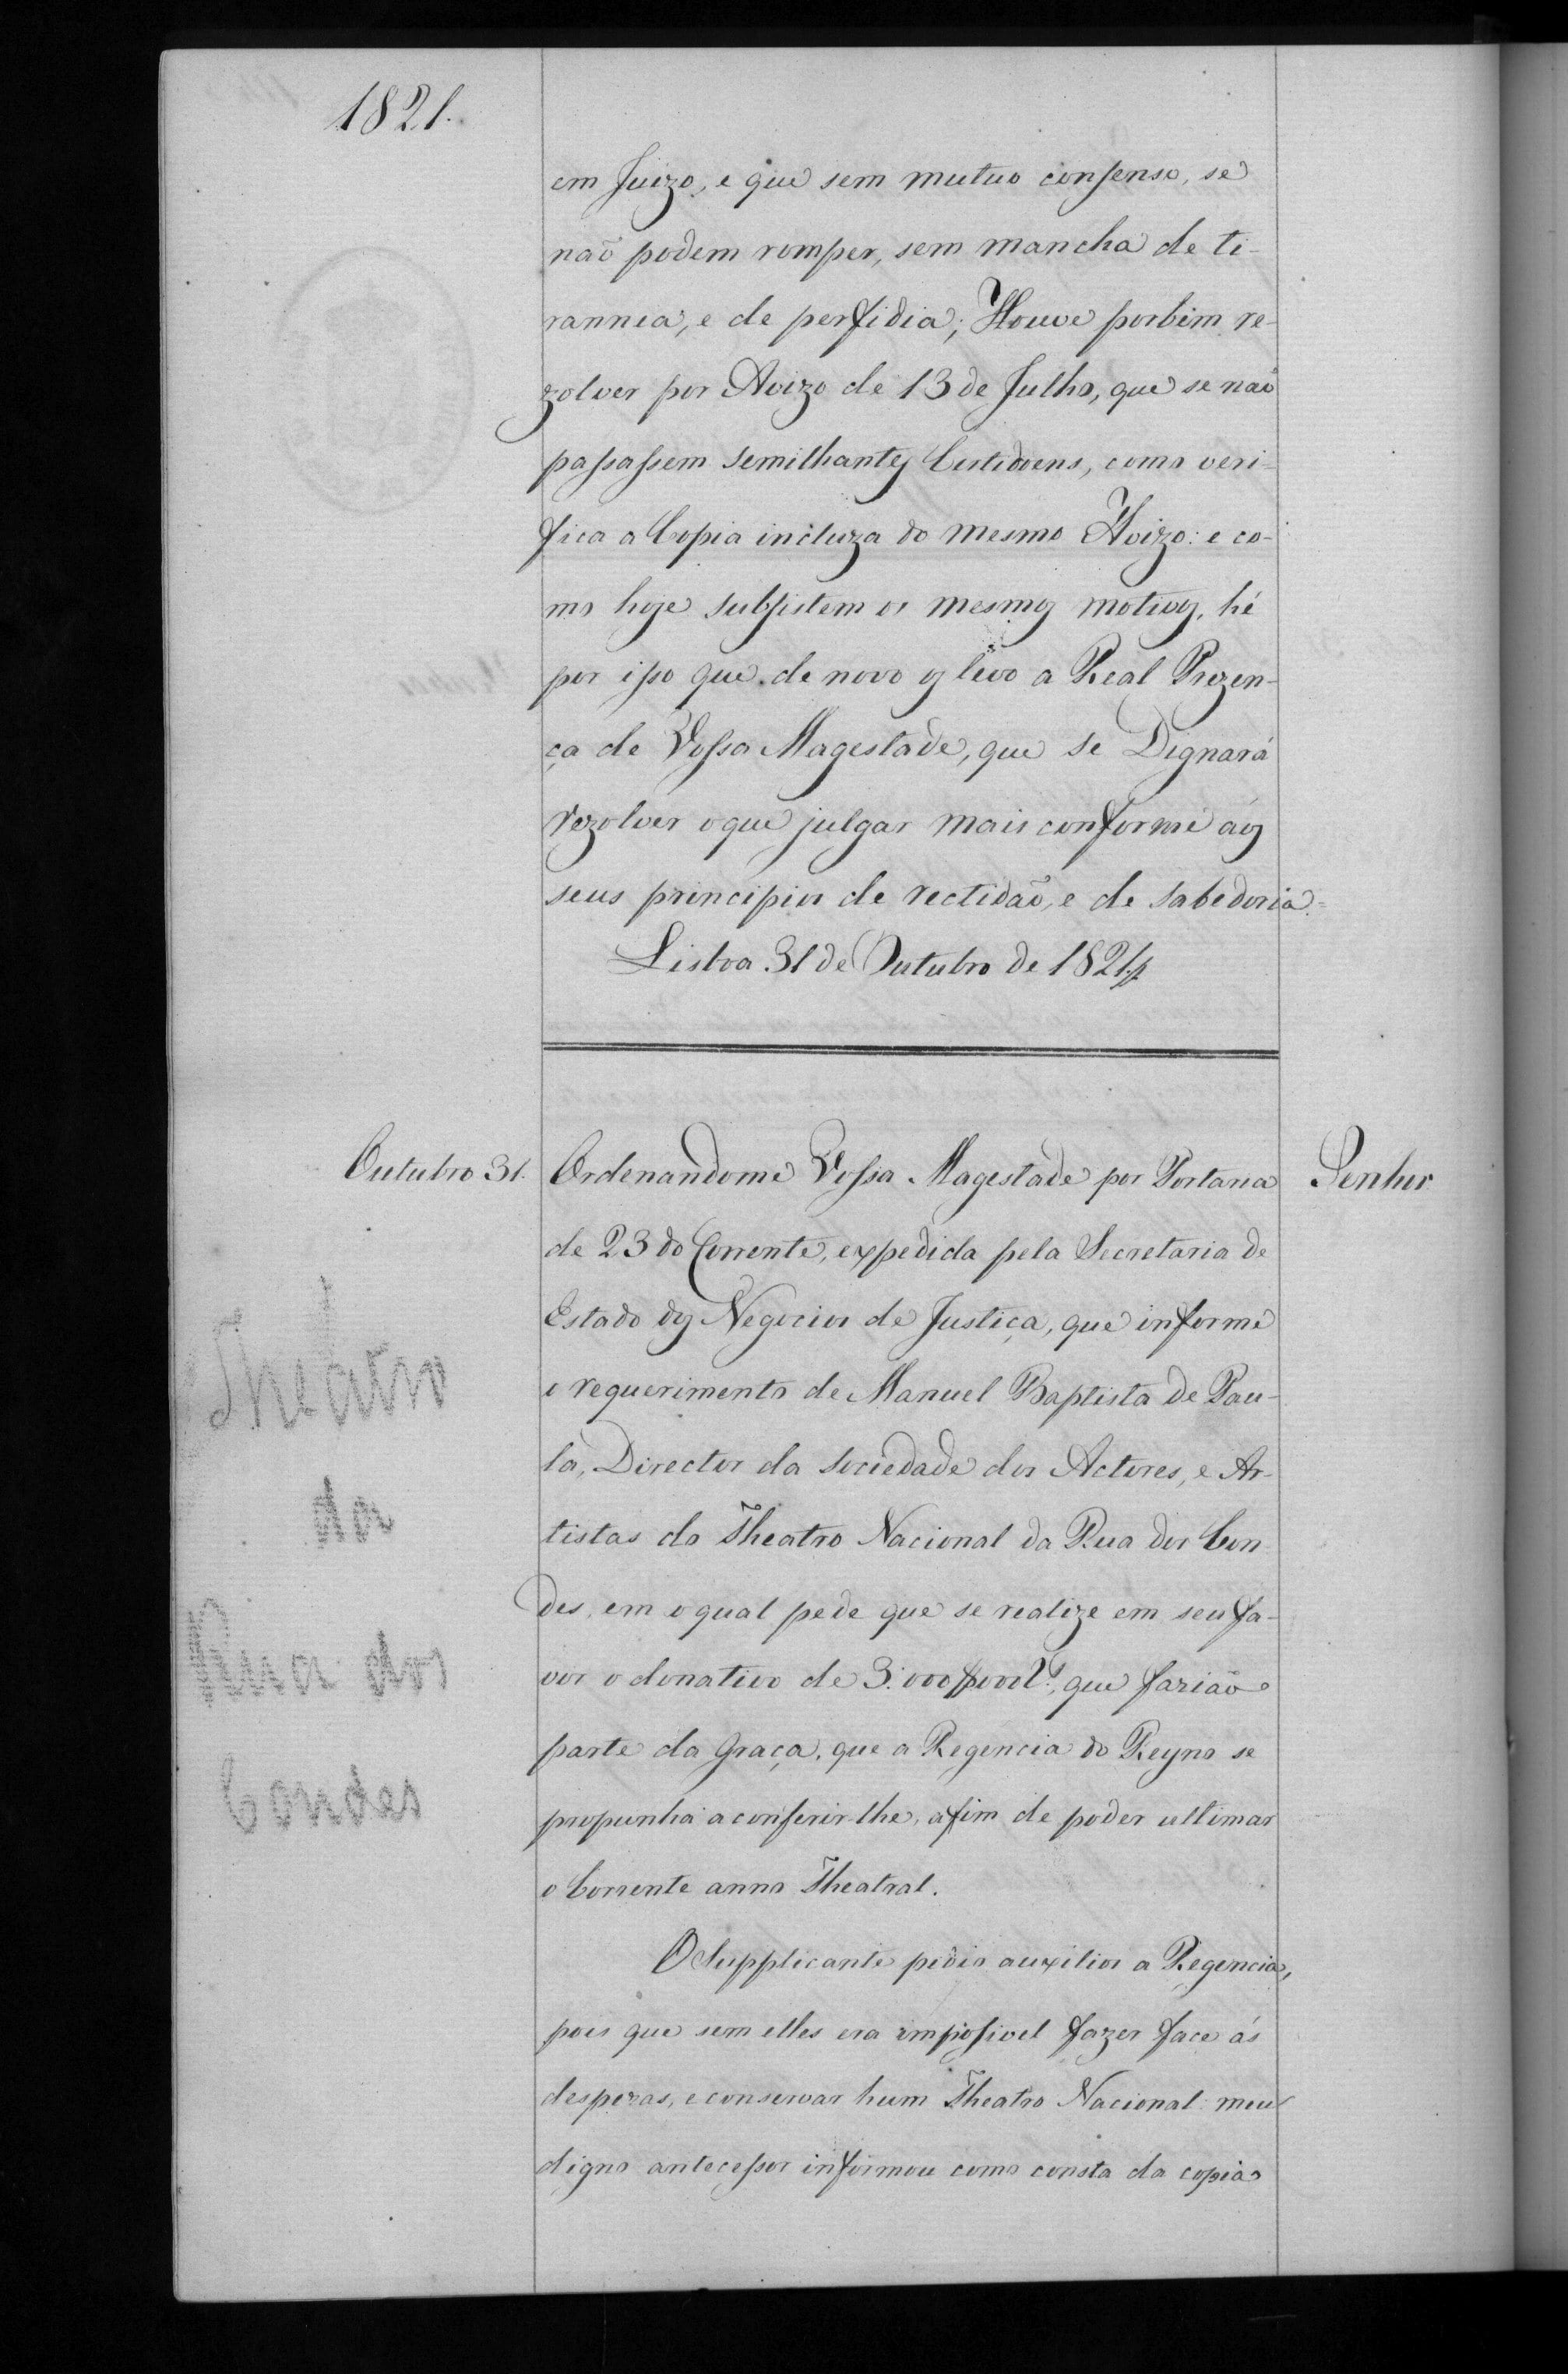 1821.
em Juizo, e que sem mutuo consenso, se
naõ podem romper, sem mancha de ti-
rannia, e de perfidia; Houve porbem re-
zolver por Avizo de 13 de Julho, que se naõ
passassem Semilhantes Certidoens, como veri-
fica a Copia incluza do mesmo Avizo: e co-
mo hoje subsistem os mesmos motivos, hé
por isso que de novo os levo a Real Prezen-
ça de Vossa Magestade, que se Dignará
rezolver oque julgar mais conforme áos
seus principios de rectidaõ, e de sabedoria =
Lisboa 31 de Outubro de 1821
Outubro 31. Ordenandome Vossa Magestade por Portaria Senhor
de 23 do Corrente, expedida pela Secretaria de
Estado dos Negocios de Justiça, que informe
o requerimento de Manuel Baptista de Pau-
la, Director da Sociedade dos Actores, e Ar-
tistas do Theatro Nacional da Rua dos Con
des, em o qual pede que se realize em seu fa-
vor o donativo de 3:000$000 rs, que fariaõ
parte da Graça, que a Regencia do Reyno se
propunha a conferir-lhe, afim de poder ultimar
o Corrente anno Theatral.
O Supplicante pedio auxilios a Regencia,
pois que sem elles era impossivel fazer face ás
despezas, e conservar hum Theatro Nacional: meu
digno antecessor informou como consta da copia
Theatro
da
Rua dos
Condes